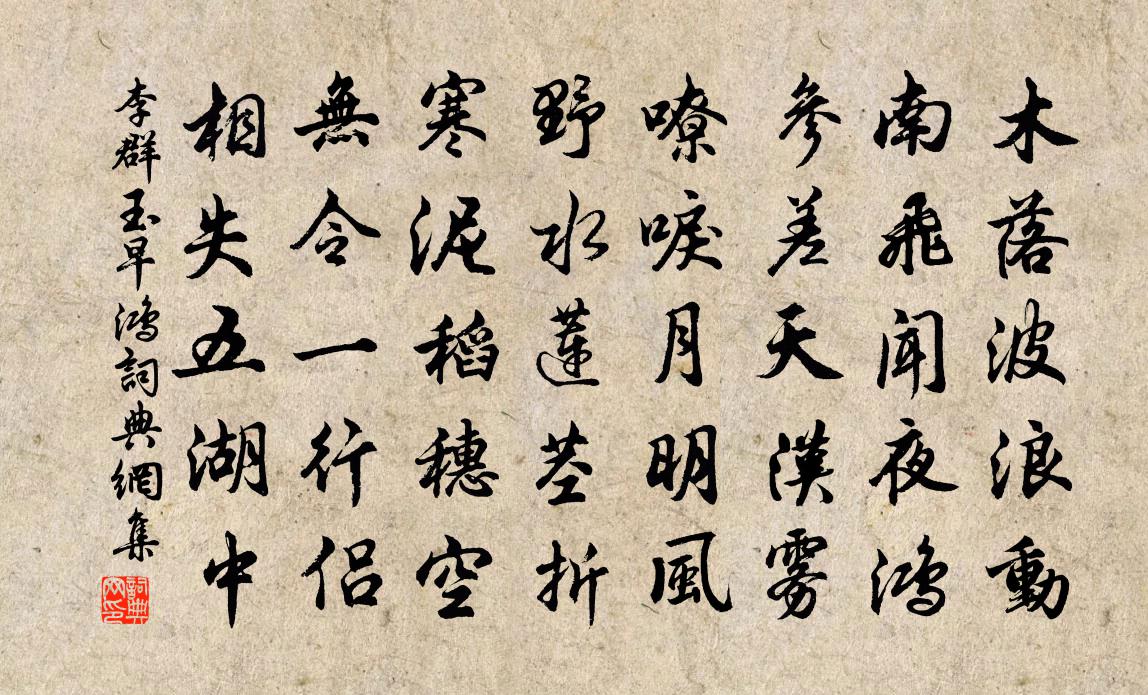 木落波浪動
南飛聞夜鴻
參差天漢雾
嘹唳月明風
野水蓮莖折
寒泥稻穗空
無令一行侶
相失五湖中
李群玉早鴻詞典網集
詞典
网印